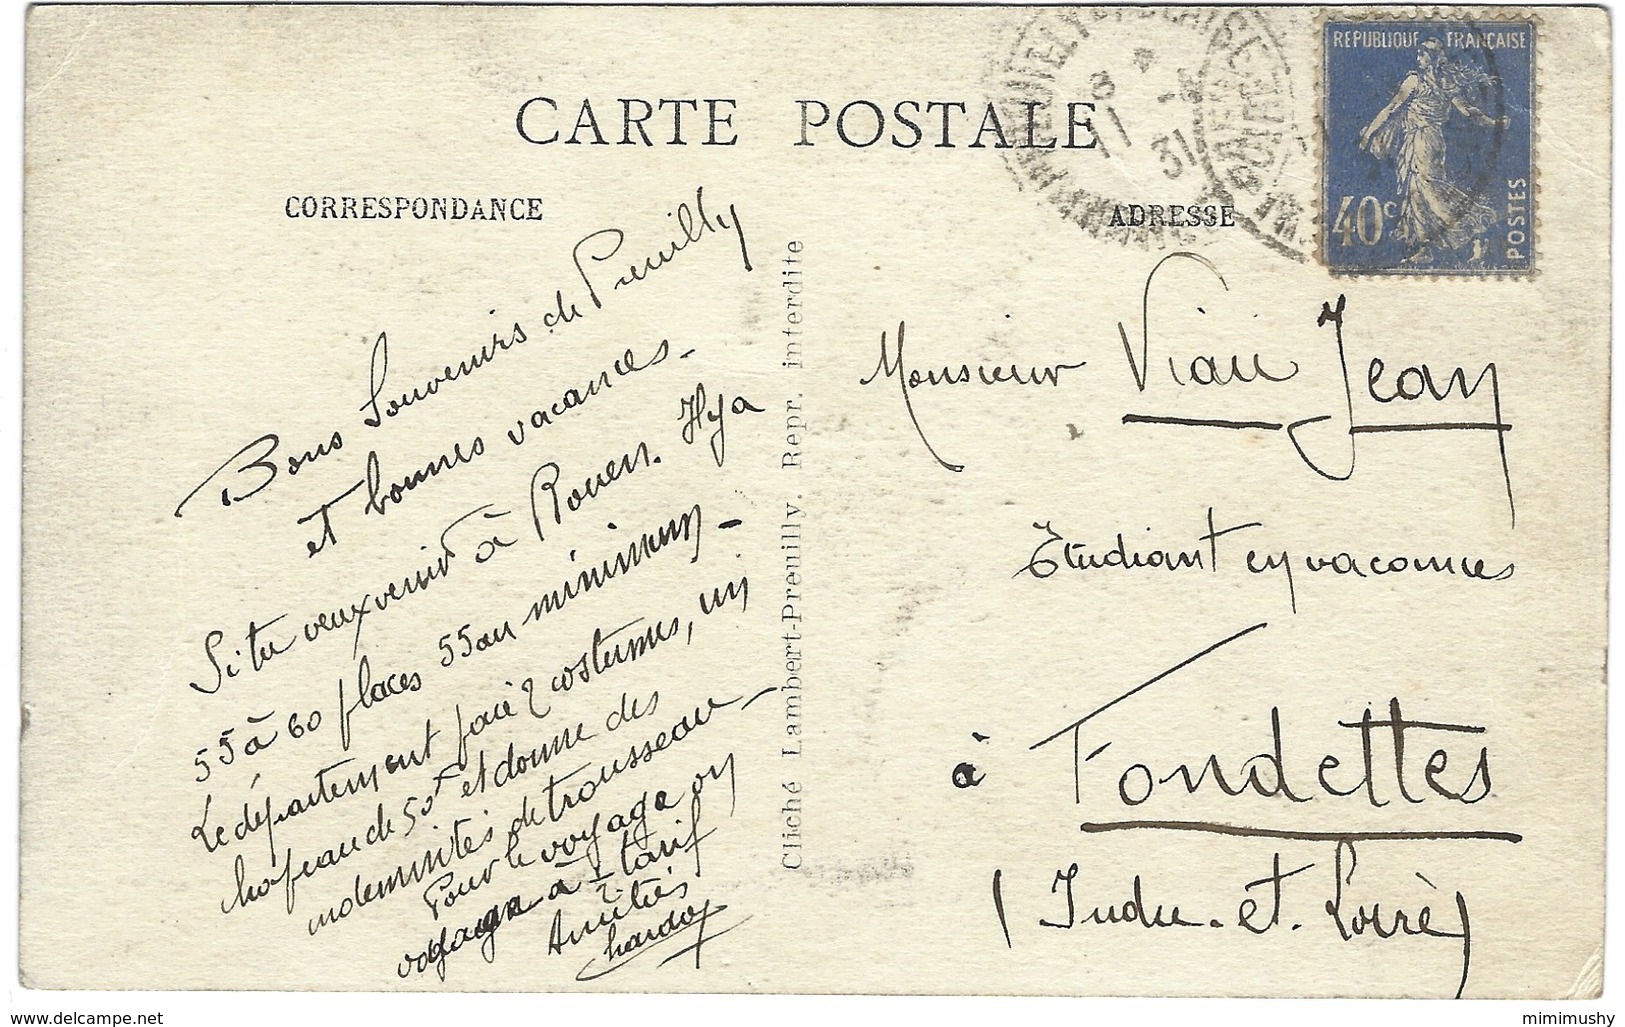 CARTE POSTALE
CORRESPONDANCE
ADRESSE
REPUBLIQUE FRANÇAISE
40c
POSTES
31
Bons Souvenirs de Preuilly
et bonnes vacances.
Si tu veux venir à Rouen. Il y a
55 à 60 places 55 au minimum -
Le département paie 2 costumes, un
chapeau de 50f et donne des
indemnités de trousseau -
Pour le voyage on
voyage à ½ tarif
Amitiés
Cliché Lambert-Preuilly. Repr. interdite
Monsieur Viau Jean
Etudiant en vacances
à Fondettes
(Indre-et-Loire)
delcampe.net
mimimushy